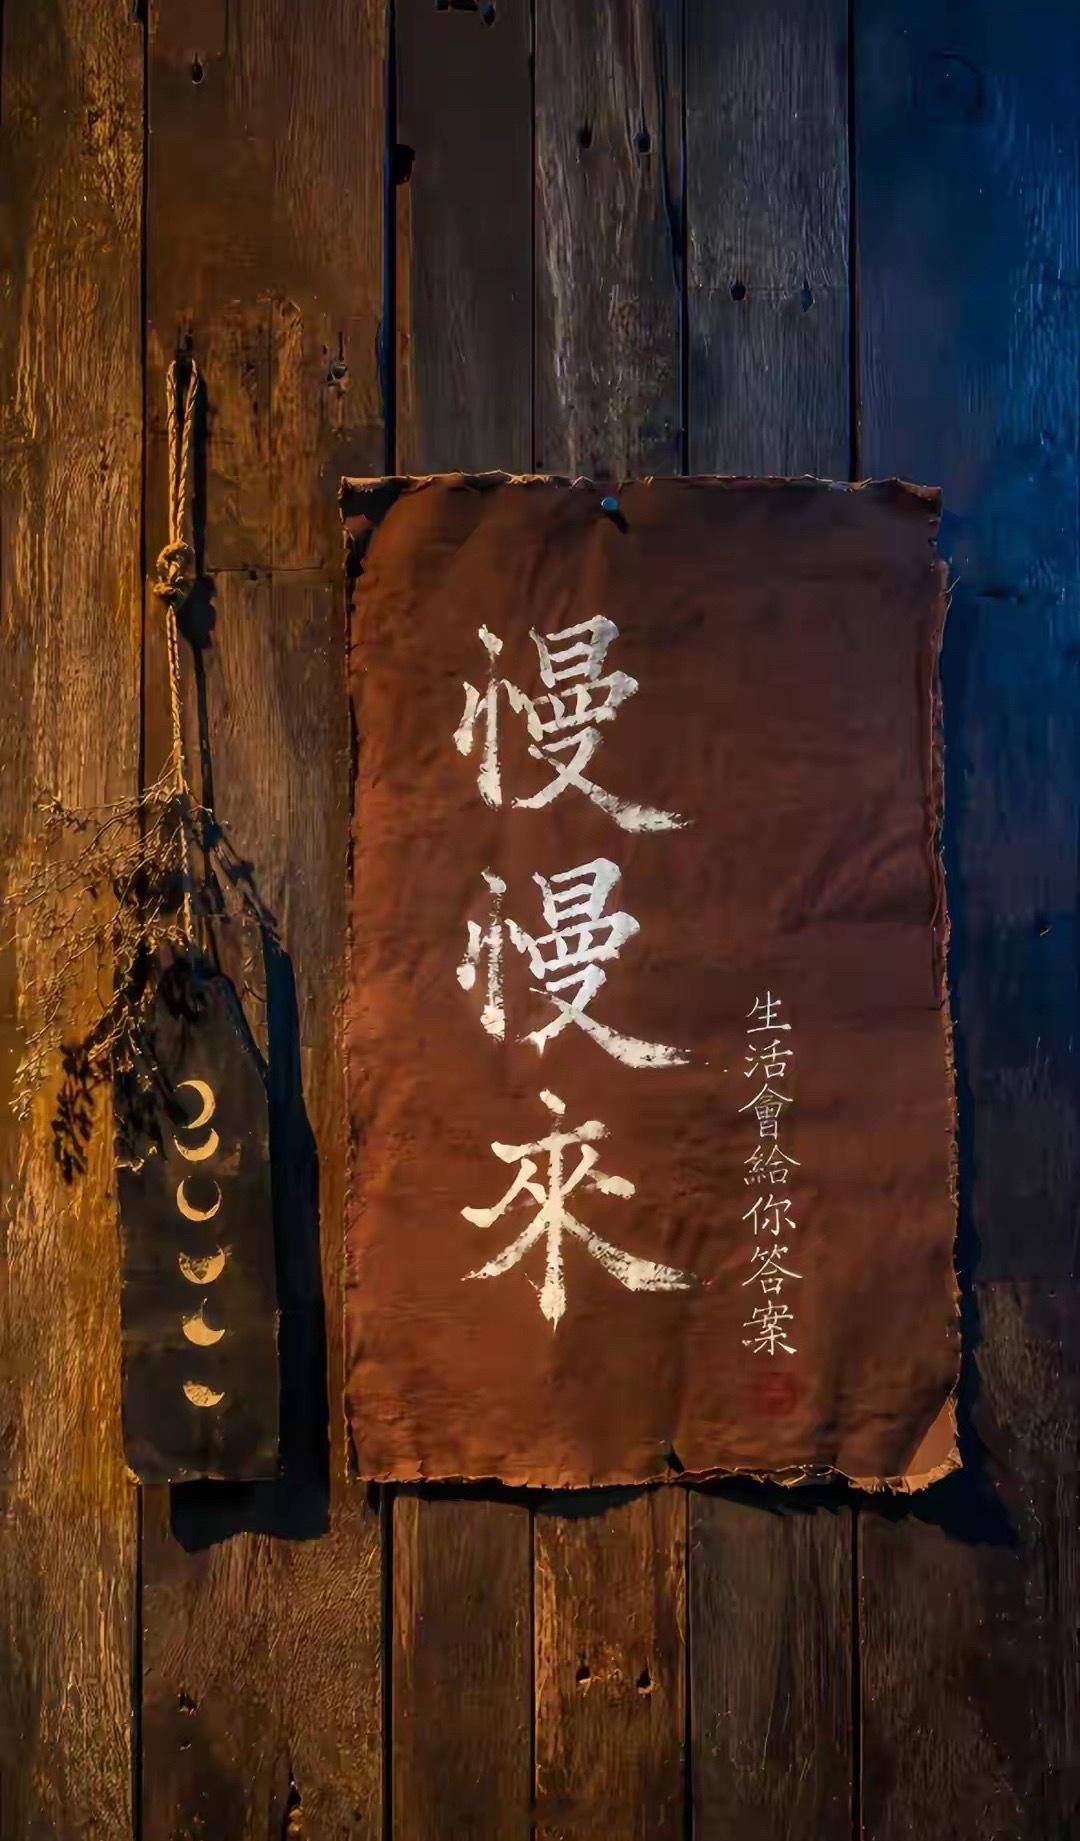 慢慢來
生活會給你答案